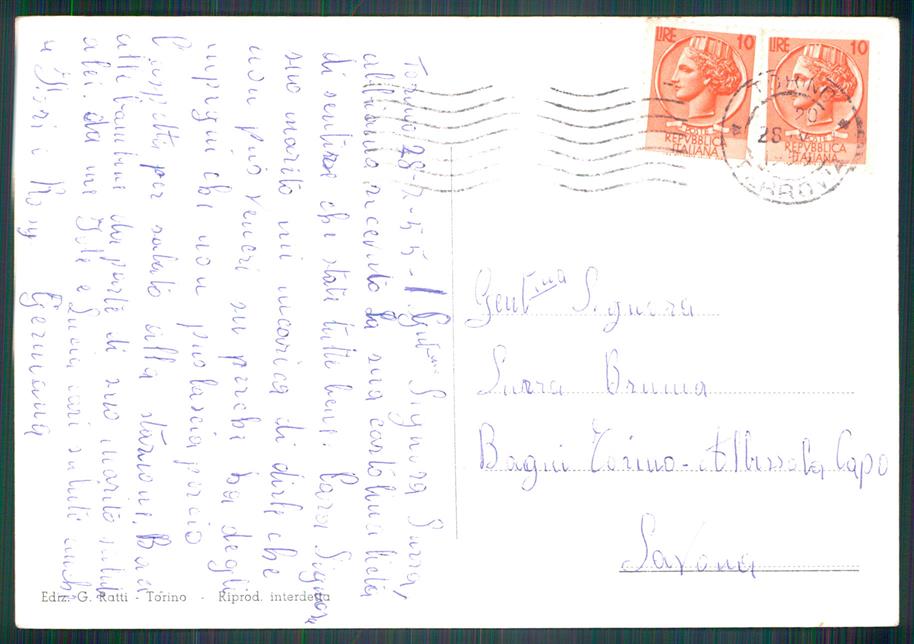 Torino 28-7-55-1. Gent.ma Signora Surra,
abbiamo ricevuto la sua cartolina lieta
di sentire che state tutti bene. Cara Signora
suo marito mi incarica di dirle che
non può venire su perché ha degli
impegni che non può lascia perciò
l'aspetta per sabato alla stazione. Baci
alle bambine da parte di suo marito saluti
a lei. da me Iole e Lucia cari saluti anche
a Fiori e Rosy Germana
Gent.ma Signora
Surra Bruna
Bagni Torino - Albissola Capo
Savona
LIRE 10
POSTE
REPVBBLICA
ITALIANA
LIRE 10
REPVBBLICA
ITALIANA
TORINO
20
28
FERROVIA
Ediz. G. Ratti - Torino - Riprod. interdetta